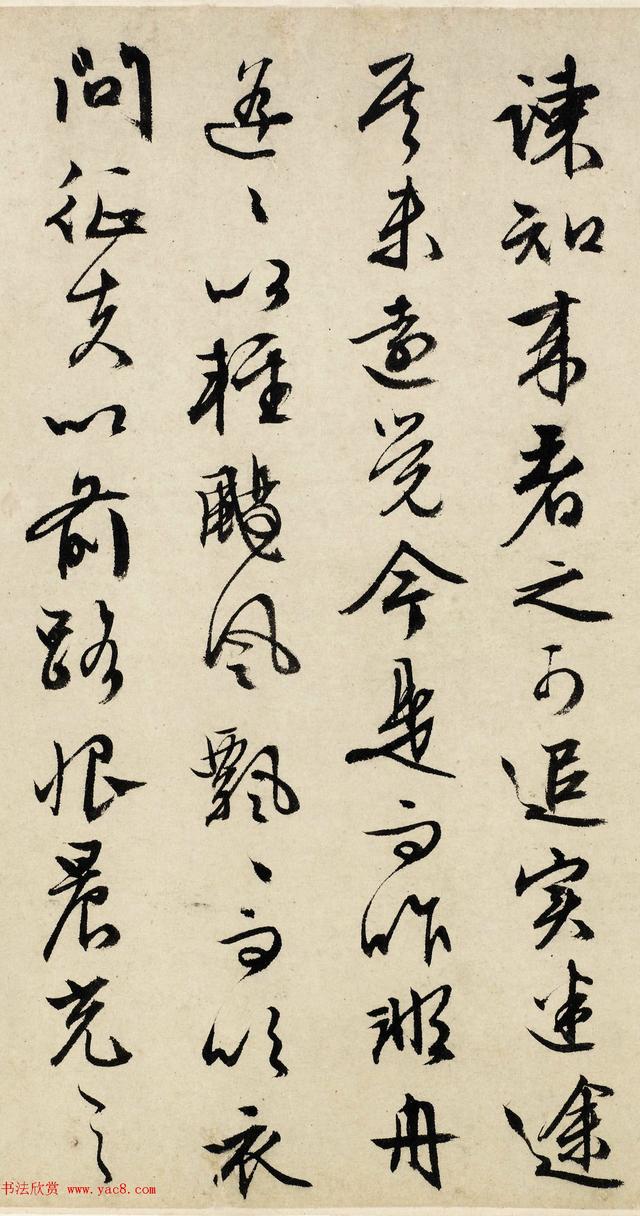 諫知来者之可追实迷途
其未遠覺今是而昨非舟
遥〻以輕颺風飄〻而吹衣
問征夫以前路恨晨光之
书法欣赏 www.yac8.com